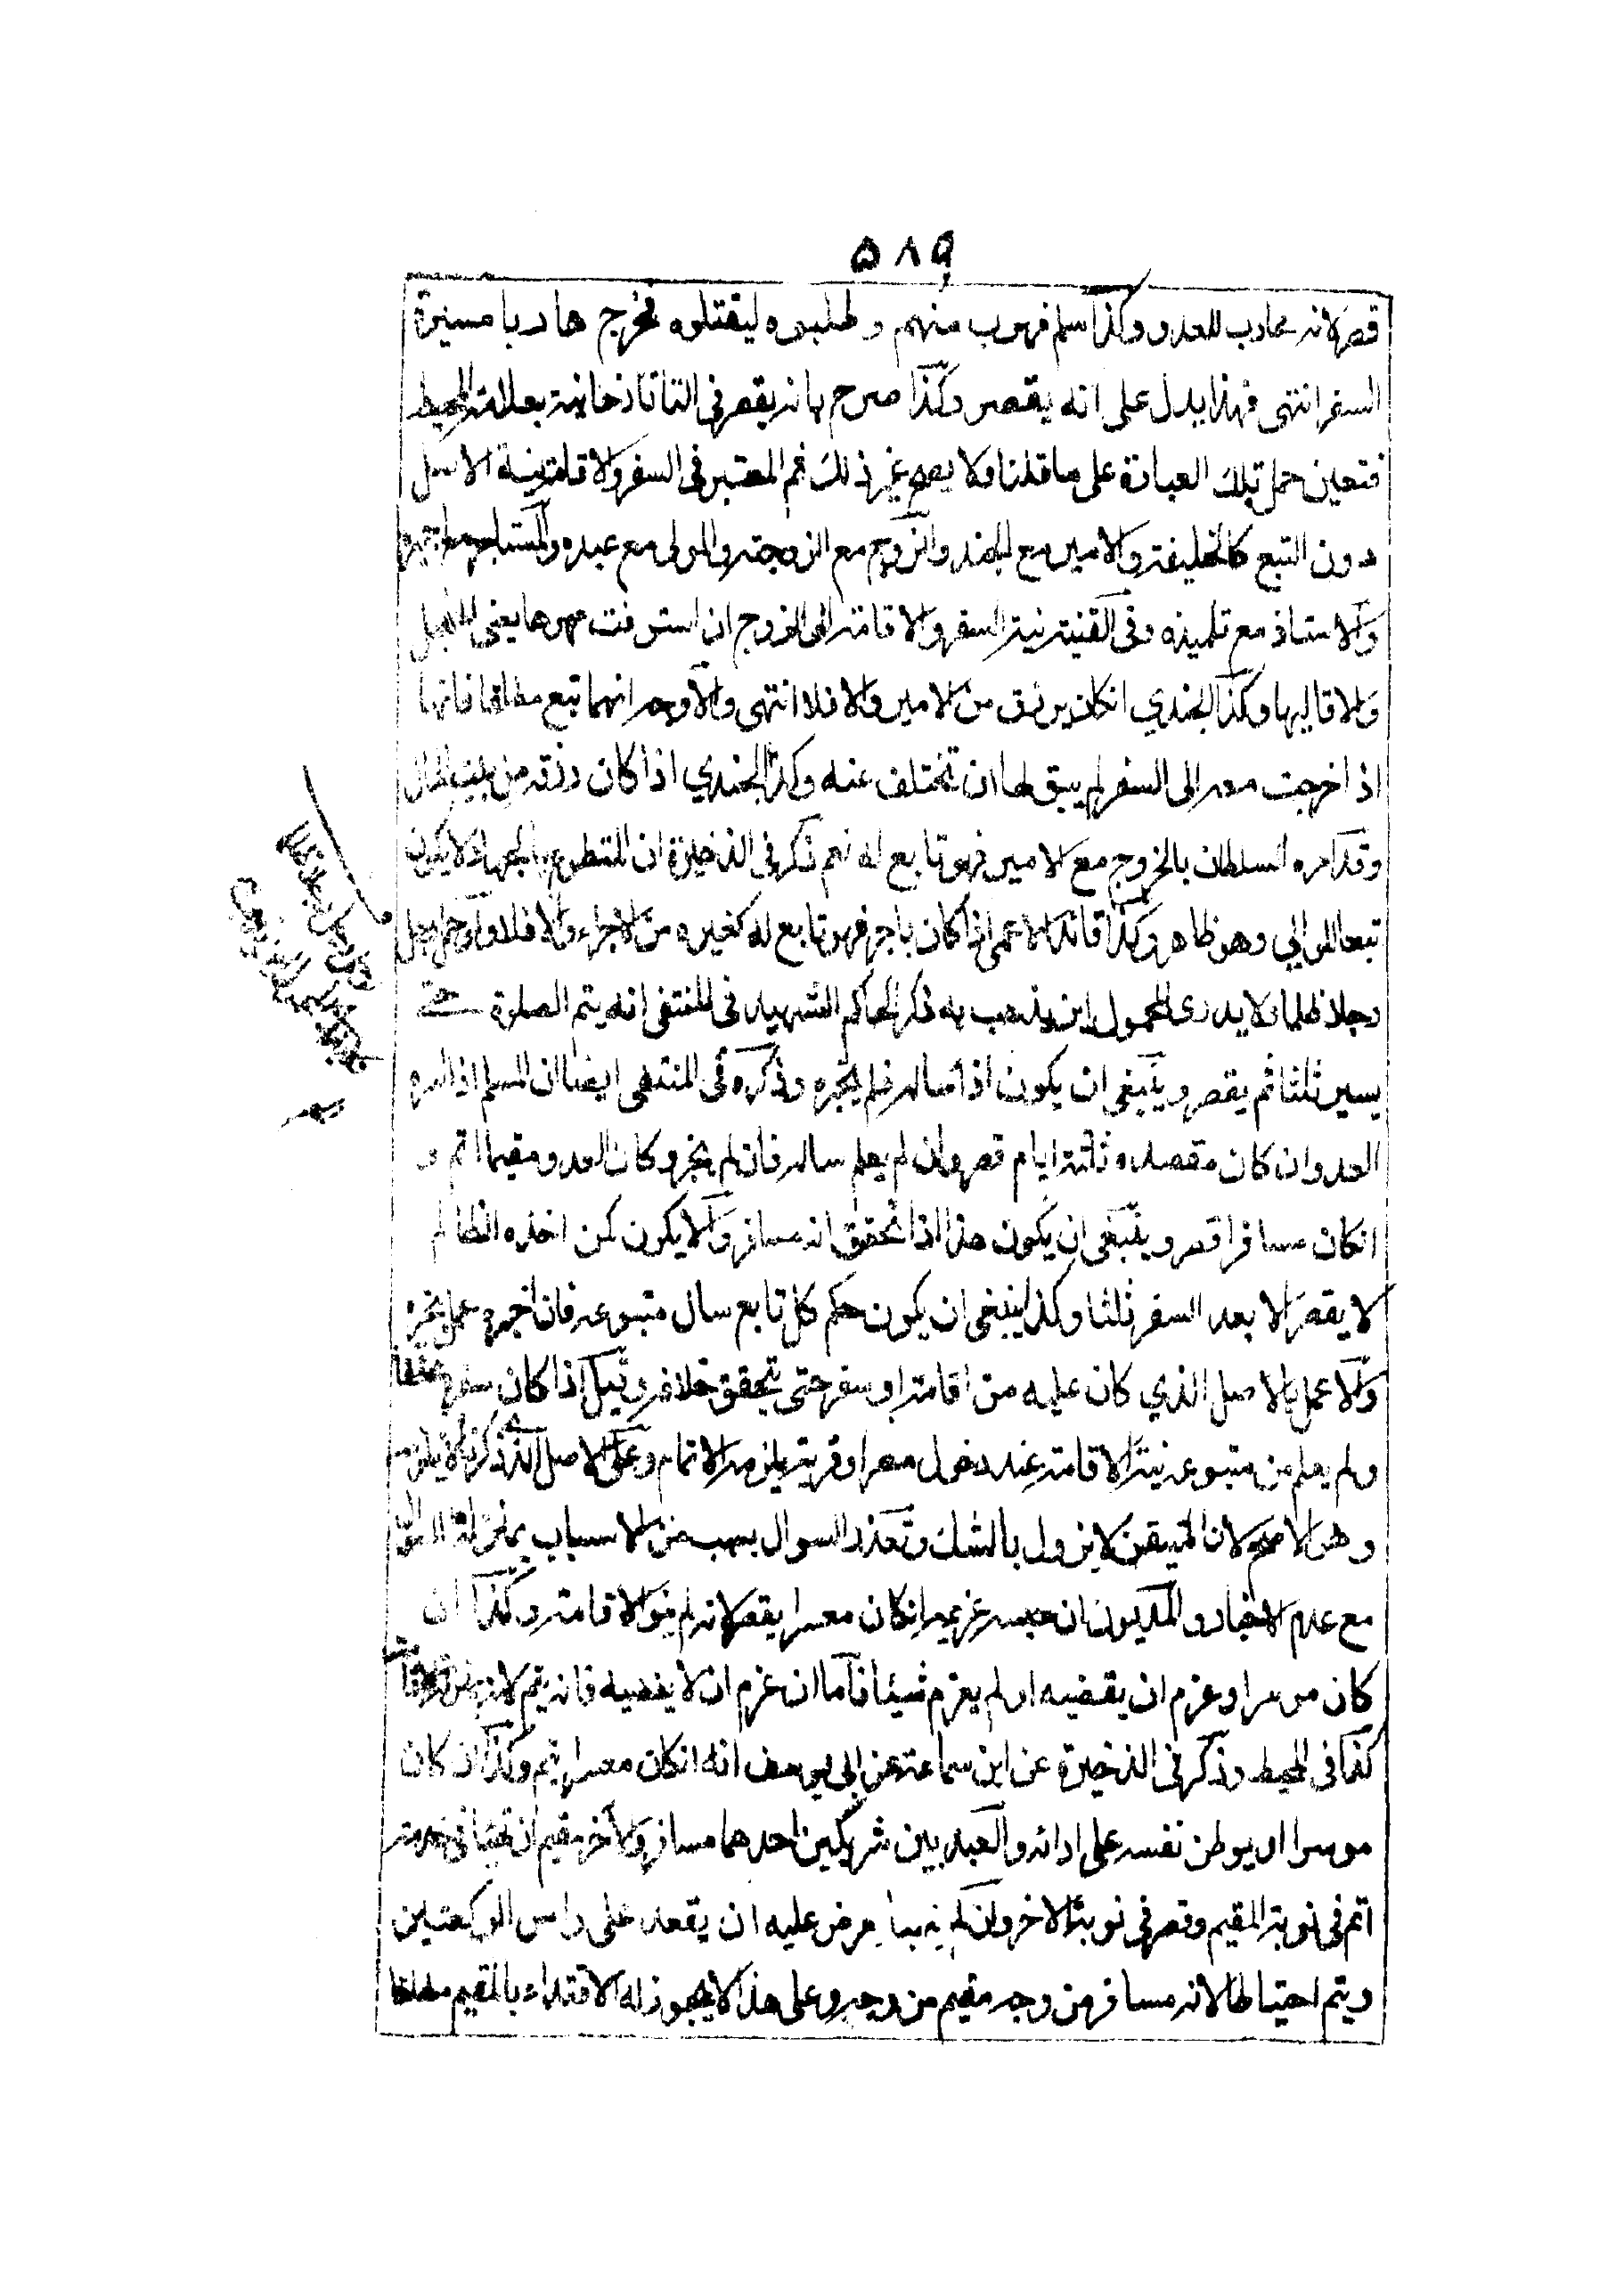 ٥٨٩
قصر لانه محارب للعدو وكذا اسلم فهرب منهم وطلبوه ليقتلوه فخرج هاربا مسيرة
السفر انتهى فهذا يدل على انه يقصر وكذا صرح بانه يقصر فى التاتارخانية بعلامة المحيط
فتعين حمل تلك العبارة على ما قلنا ولا يصح غير ذلك ثم المعتبر فى السفر والاقامة نية الاصل
دون التبع كالخليفة والامير مع الجند والزوج مع الزوجة والمولى مع عبده والمستاجر مع اجيره
والاستاذ مع تلميذه وفى القنية نية السفر والاقامة الى الزوج ان استوفت مهرها يعنى المعجل
والا فاليها وكذا الجندي انكان يرزق من الامير والا فلا انتهى والاوجه انهما تبع مطلقا فانها
اذ اخرجت معه الى السفر لم يبق لها ان تختلف عنه وكذا الجندي اذا كان رزقه من بيت المال
وقد امره السلطان بالخروج مع الامير فهو تابع له نعم ذكر فى الذخيرة ان المتطوع بالجهاد لا يكون
تبعا للوالي وهو ظاهر وكذا قائد الاعمى اذا كان باجر فهو تابع له كغيره من الاجراء والا فلا ولو حمل رجل
رجلا ظلما ولا يدرى المحمول اين يذهب به ذكر الحاكم الشهيد فى المنتقى انه يتم الصلوة حتى
يسير ثلثا ثم يقصر وينبغى ان يكون اذا ساله فلم يخبره وذكره فى المنتقى ايضا ان المسلم اذا اسره
العدو ان كان مقصده ثلثة ايام قصر وان لم يعلم ساله فان لم يخبر وكان العدو مقيما اتم و
انكان مسافرا قصر وينبغى ان يكون هذا اذا تحقق انه مسافر والا يكون كمن اخذه الظالم
لا يقصر الا بعد السفر ثلثا وكذا ينبغى ان يكون حكم كل تابع سال متبوعه فان اخبره عمل بخبره
والا عمل بالاصل الذي كان عليه من اقامة او سفر حتى يتحقق خلافه وقيل اذا كان
ولم يعلم من متبوعه نية الاقامة عند دخول مصر او قرية يلزمه الاتمام وعلى الاصل الذي ذكرنا لا يلزمه
وهو الاصح لان المتيقن لا يزول بالشك وتعذر السوال بسبب من الاسباب بمنزلة السوال
مع عدم الاخبار والمديون ان حبسه غريمه انكان معسرا يقصر لانه لم ينو الاقامة وكذا ان
كان موسرا وعزم ان يقضيه او لم يعزم شيئا فاما ان عزم ان لا يقضيه فانه يتم
كذا فى المحيط وذكر فى الذخيرة عن ابن سماعة عن ابى يوسف انه انكان معسرا يتم وكذا ان كان
موسرا او يوطن نفسه على ادائه والعبد بين شريكين احدهما مسافر والاخر مقيم ان تهيئا فى خدمته
اتم فى نوبة المقيم وقصر فى نوبة الاخر وان لم يتهيئا فرض عليه ان يقعد على راس الركعتين
ويتم احتياطا لانه مسافر من وجه مقيم من وجه وعلى هذا لا يجوز له الاقتداء بالمقيم مطلقا